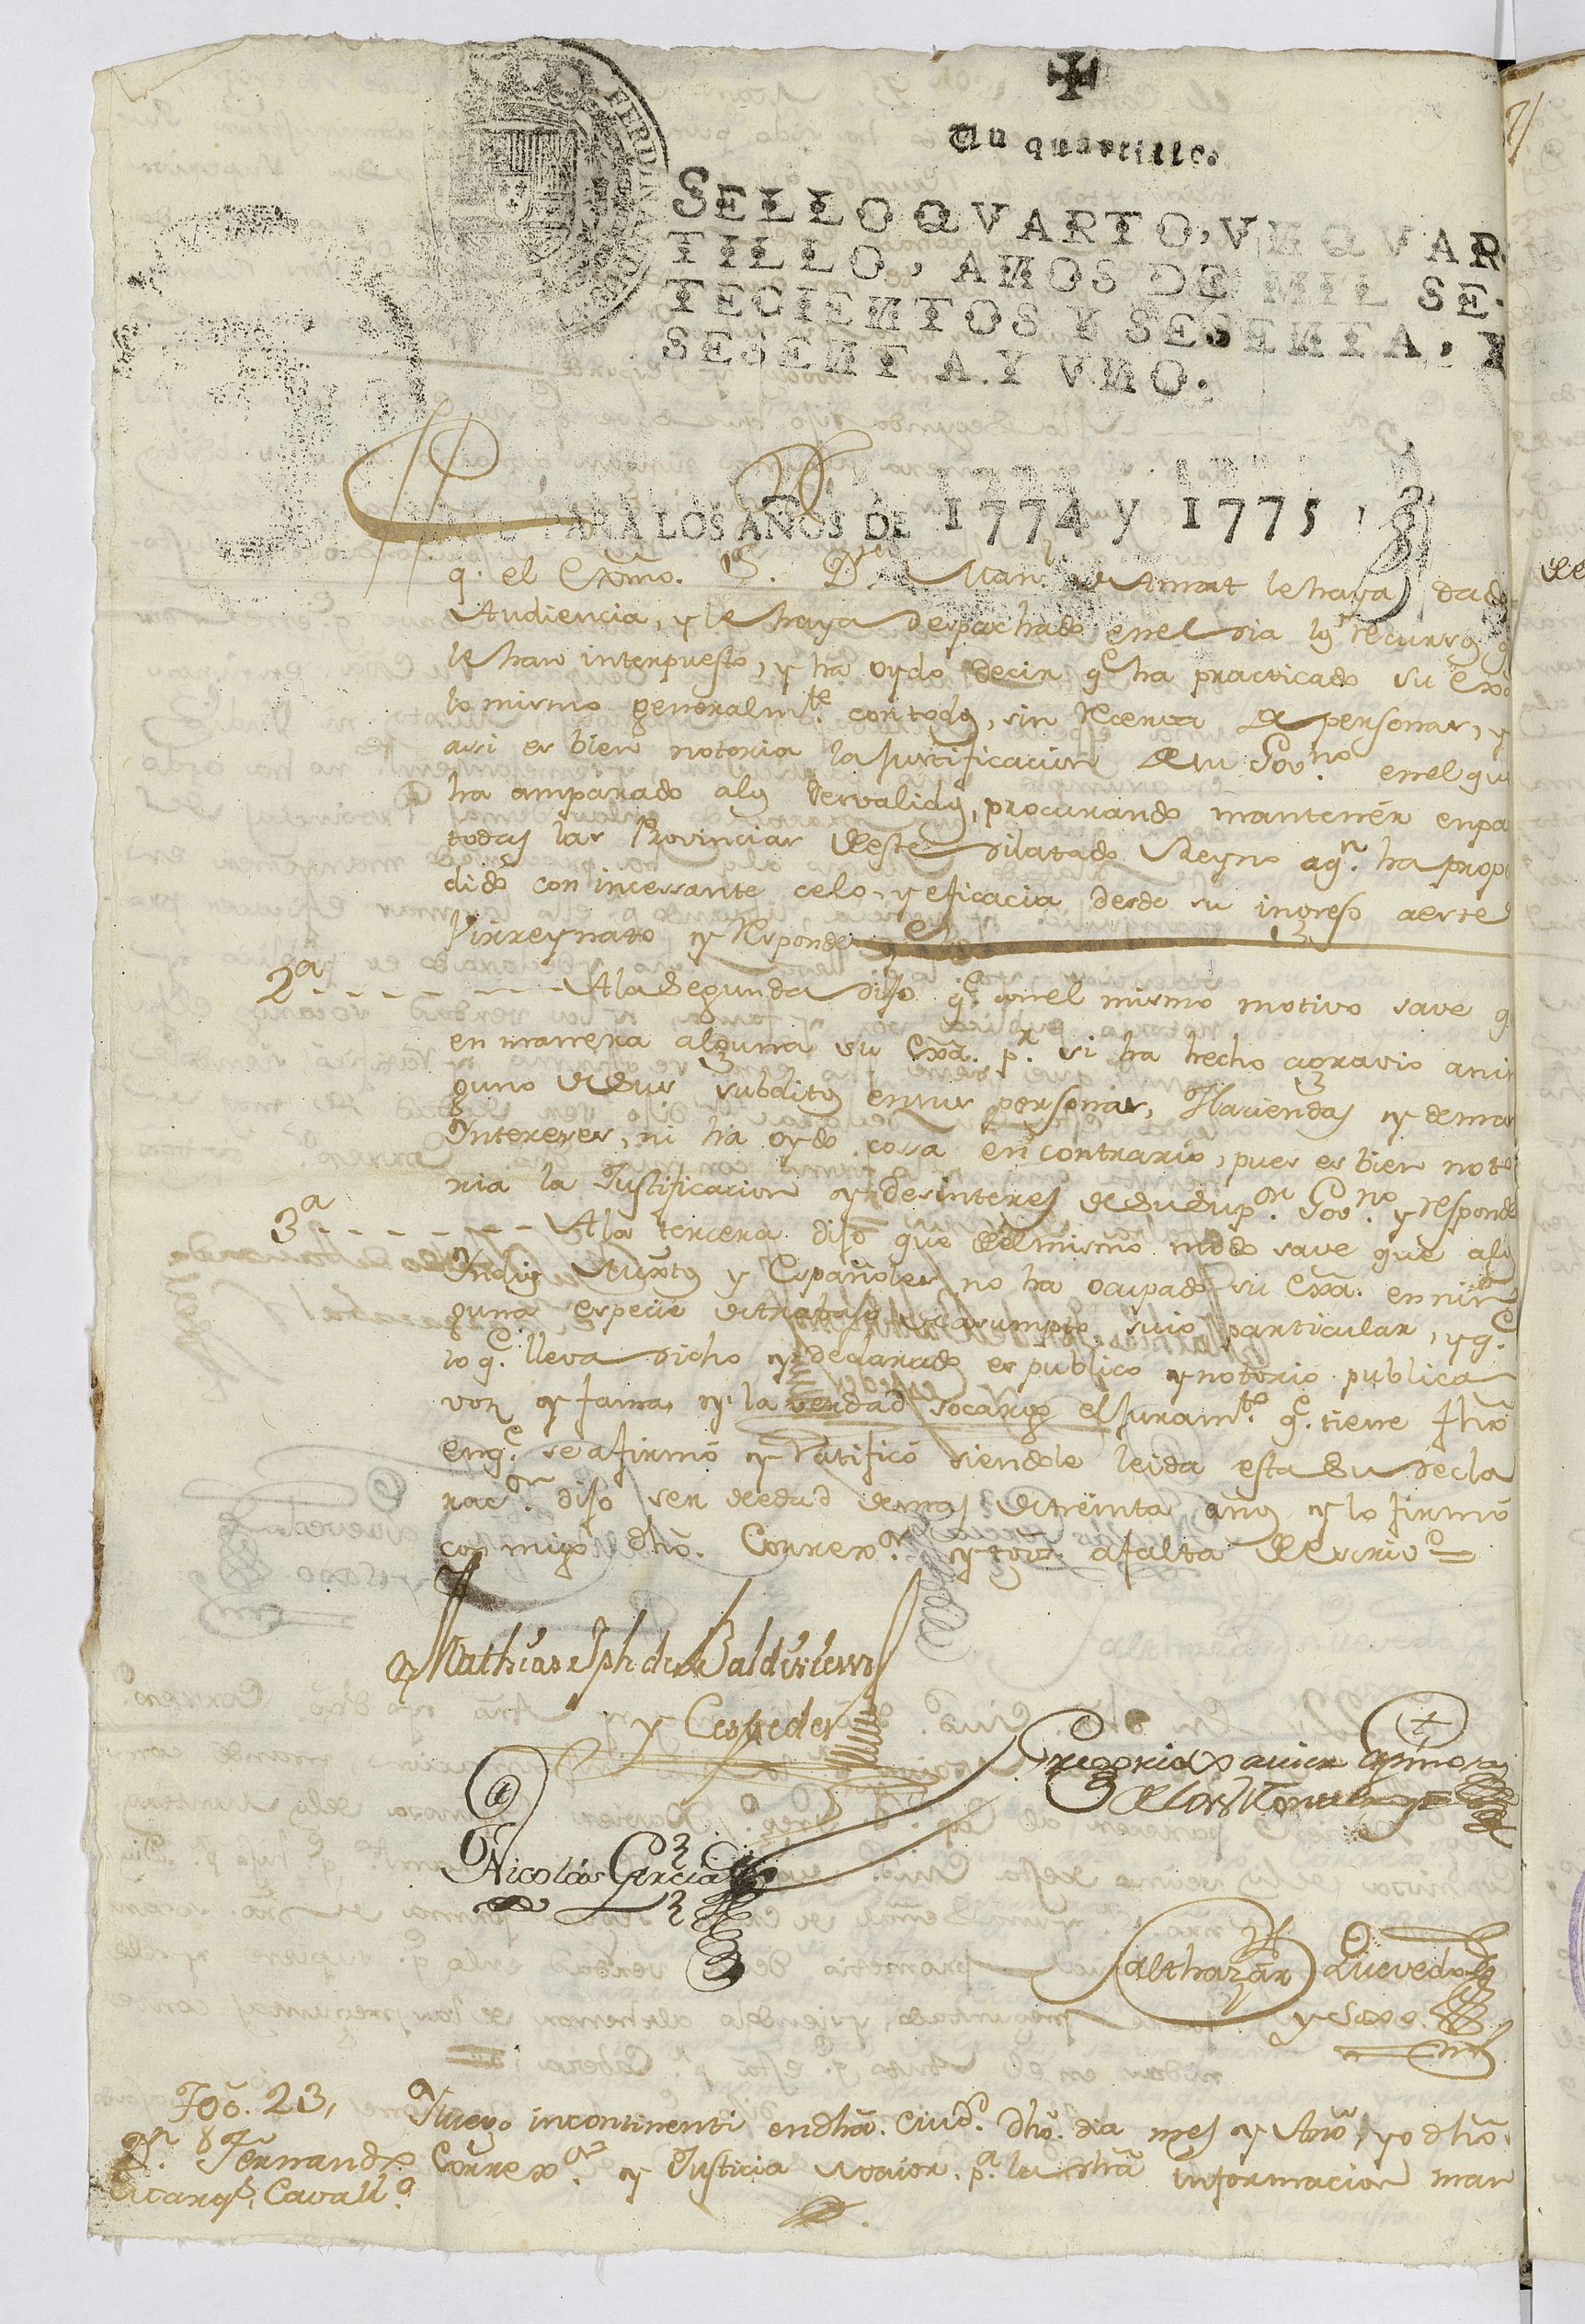 Un quartillo.
SELLO QVARTO, VN QVAR
TILLO, AÑOS DE MIL SE-
TECIENTOS Y SESENTA, Y
SESENTA Y VNO.
PARA LOS AÑOS DE 1774 y 1775
q.e el Exmo. S.or D.n Man.l de Amat le haya dado
Audiencia, y le haya despachado en el dia los recursos q.e
le han interpuesto, y ha oydo decir q.e ha practicado su Exa
lo mismo generalm.te con todos, sin recerva de personas, y
assi es bien notoria la Justificacion de su Gov.no en el qu
ha amparado a los desvalidos, procurando mantener en pa
todas las Provincias de este dilatado Reyno a q.n ha prope
dido con incessante celo, y eficacia desde su ingreso a este
Virreynato y Responde
2.a - - - - - - - - A la Segunda dijo q.e con el mismo motivo save q.e
en manera alguna su Exa. p.r si ha hecho agravio a nin
guno de sus subditos en sus personas, Haciendas y demas
Intereses, ni ha oydo cossa en contrario, pues es bien noto
ria la Justificacion y desinteres de su Sup.or Gov.no y responde
3.a - - - - - - - - A la tercera dijo que del mismo modo save que a los
Indios Mixtos y Españoles no ha ocupado su Exa. en nin
guna especie de trabajo de asumpto suio particular, y q.e
lo q.e lleva dicho y declarado es publico y notorio publica
voz y fama, y la verdad so cargo el Juram.to q.e tiene fho
en q.e se afirmó y Ratificó siendole leida esta su decla
rac.on dijo ser de edad de mas de treinta años y lo firmó
con migo dho. Correx.or y tgos. a falta de escriv.o =
Mathias Jph de Baldivieso
y Cespedes
Gregorio Xavier Espinosa
de los Monteros
Nicolás Garcia
Balthazar Quevedo
y Saso
Tgo. 23,
D.n Fernando
Marqs. Cavall.o
Y luego incontinenti en dha. Ciud.d dho. dia mes y Año, yo dho
Correx.or y Justicia Maior. p.a la dha informacion man